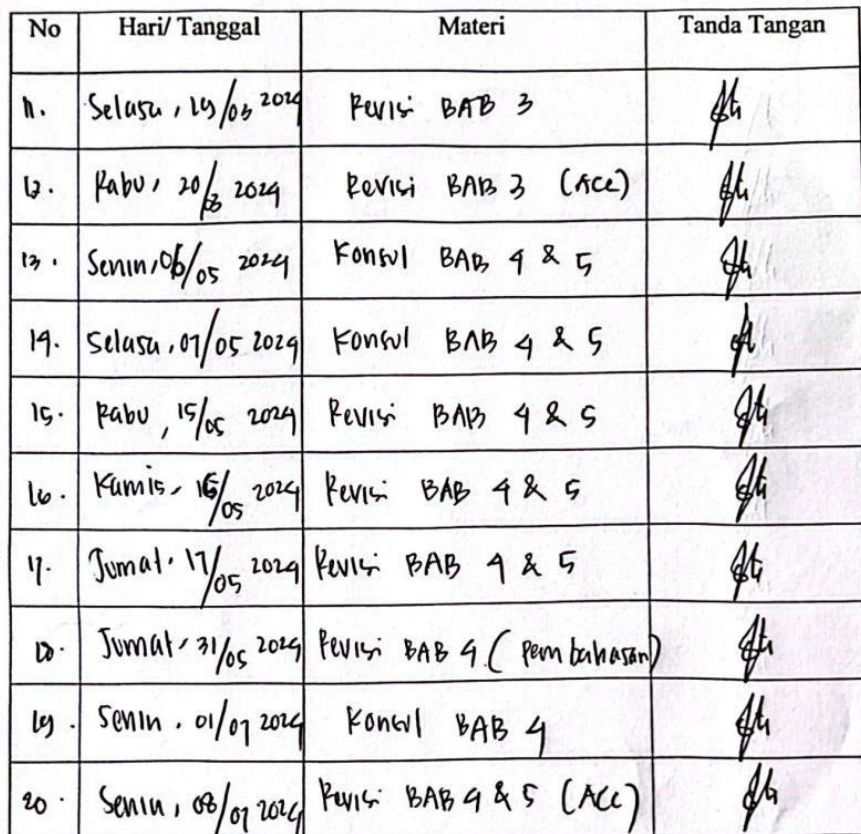 No Hari/ Tanggal Materi Tanda Tangan
11. Selasa, 19/03 2024 Revisi BAB 3
12. Rabu, 20/03 2024 Revisi BAB 3 (ACC)
13. Senin, 06/05 2024 Konsul BAB 4 & 5
14. Selasa, 07/05 2024 Konsul BAB 4 & 5
15. Rabu, 15/05 2024 Revisi BAB 4 & 5
16. Kamis, 16/05 2024 Revisi BAB 4 & 5
17. Jumat, 17/05 2024 Revisi BAB 4 & 5
18. Jumat, 31/05 2024 Revisi BAB 4 (pembahasan)
19. Senin, 01/07 2024 Konsul BAB 4
20. Senin, 08/07 2024 Revisi BAB 4 & 5 (ACC)